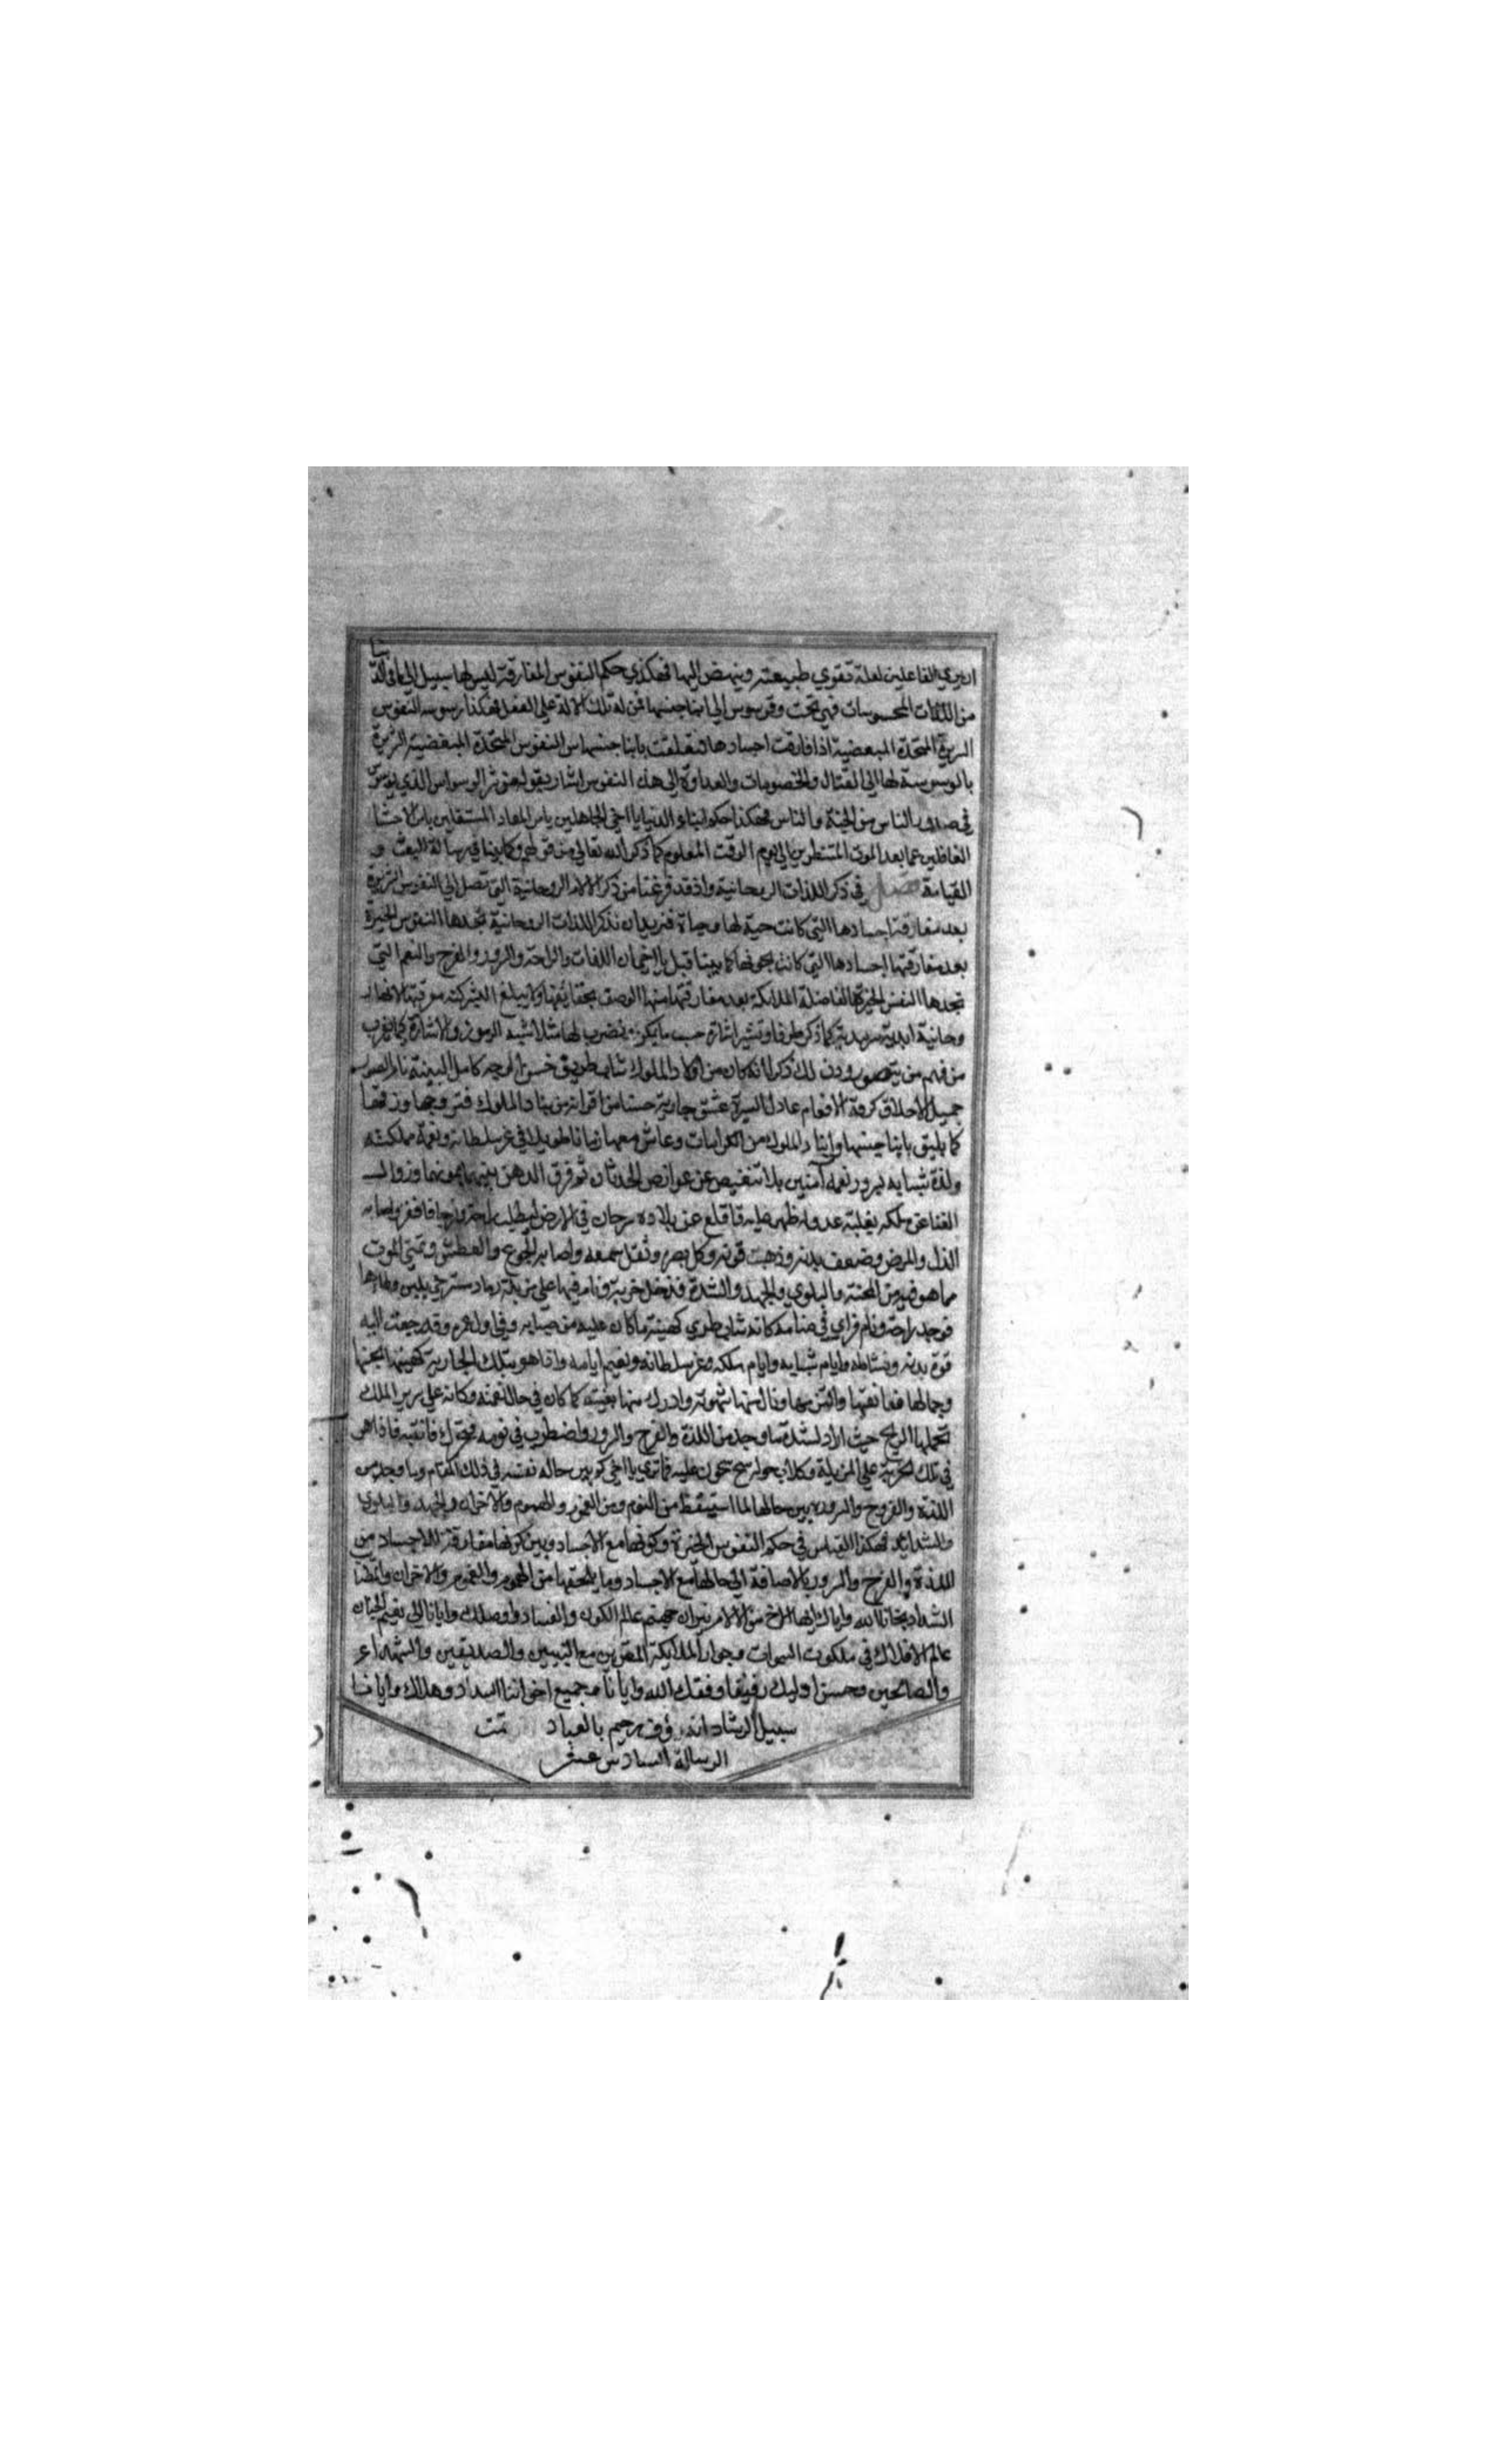 ان يري الفاعلين لعلة تقوي طبيعته وينهض اليها فهكذي حكم النفوس المفارقة ليس لها سبيل الي ما في الدنيا
من اللذات المحسوسات فهي تحت وتوسوس الي ابنا جنسها من له تلك الالة علي الفعل فهكذا وسوسه النفوس
الشريرة المتحدة المبغضية اذا فارقت اجسادها تعلقت بابنا جنسها من النفوس المتحدة المبغضية الشريرة
بالوسوسة لها الي القتال والخصومات والعداوة الي هذه النفوس اشار بقوله من شر الوسواس الذي يوسوس
في صدور الناس من الجنة والناس فهكذا حكم ابناء الدنيا يا اخي الجاهلين بامر المعاد
الغافلين عما بعد الموت المنتظرين الي يوم الوقت المعلوم كما ذكر الله تعالي من قولهم وكما بينا في رسالة البعث و
القيامة فصل في ذكر اللذات الروحانية واذ قد فرغنا من ذكر الالام الروحانية التي تصل الي النفوس الشريرة
بعد مفارقة اجسادها التي كانت حية لها وحياة فنريد ان نذكر اللذات الروحانية تجدها النفوس الخيرة
بعد مفارقتها اجسادها التي كانت كما بينا قبل يا اخي ان اللذات والراحة والسرور والفرح والنعم التي
تجدها النفس الخيرة الفاضلة الملائكة بعد مفارقتها منها الوصف بحقايقها ولا يبلغ البشر كنه معرفتها لانها ر
وحانية ابدية سرمدية كما ذكر طرفا ونشير اشارة حسب ما يمكن فنضرب لها مثلا شبه الرموز والاشارة كيما يقرب
من فهم من يتصور وذن لك ذكر انه كان من اولاد الملوك شابا طريق حسن الوجه كامل البنية نادر الصورة
جميل الاخلاق كرهة الافعام عادل السيرة عشق جارية حسنا من اقرانه من بنات الملوك فتزوجها وزفها
كما يليق بابنا جنسها وابنا الملوك من الكرامات وعاش معها زمانا طويلا في عز سلطانه ونعمة مملكته
ولذة شبابه بسرور نعمه آمنين بلا تنغيص عن عوارض الحدثان ثم فرق الدهر بينهما وزوال
الغنا عن ملكه بغلبة عدو له ظهر عليه فاقلع عن بلاده سرحان في الارض
الذل والمرض وضعف بدنه وذهبت قوته وكل بصره وثقل سمعه واصابه الجوع والعطش وتمني الموت
مما هو فيه من المحنة والبلوي والجهد والشدة فدخل خربة ونام فيها علي مزبلة رماد
فوجد راحة ونام فراي في منامه كانه شاب طري كهيئة ما كان عليه من صبايه وفي اول عمره وقد رجعت اليه
قوة بدنه ونشاطه وايام شبابه وايام ملكه وعز سلطانه ونعيم ايامه واذا هو بتلك الجارية كهيئتها بحسنها
وجمالها فعانقها والتزمها ونال منها شهوته وادرك منها بغيته كما كان في حال نعمته وكانه علي سرير الملك
تحملها الريح حيث اراد لشدة ما وجد من اللذة والفرح والسرور واضطرب في نومه فتحرك فانتبه فاذا هي
في تلك الخربة علي المزبلة وكلاب حوله ينبحون عليه فما تري يا اخي كم بين حاله نفسه في ذلك المقام وما وجد من
اللذة والفروح والسرور وبين حالها لما استيقظ من النوم ومن الغموم والهموم والاحزان والجهد والبلوي
والشدائد فهكذا القياس في حكم النفوس الخيرة وكونها مع الاجساد وبين كونها مفارقة للاجساد من
اللذة والفرح والسرور بالاضافة الي حالها مع الاجساد وما يلحقها من الهموم والغموم والاحزان
الشداد نجانا الله واياك ايها الاخ من الالام نيران جهنم عالم الكون والفساد واوصلك وايانا الي نعيم الجنان
عالم الافلاك في ملكوت السموات وجوار الملايكة المقربين مع النبيين والصديقين والشهداء
والصالحين وحسن اوليك رفيقا وفقك الله وايانا وجميع اخواننا السداد وهداك وايانا
سبيل الرشاد انه رؤف رحيم بالعباد تمت
الرسالة السادس عشر